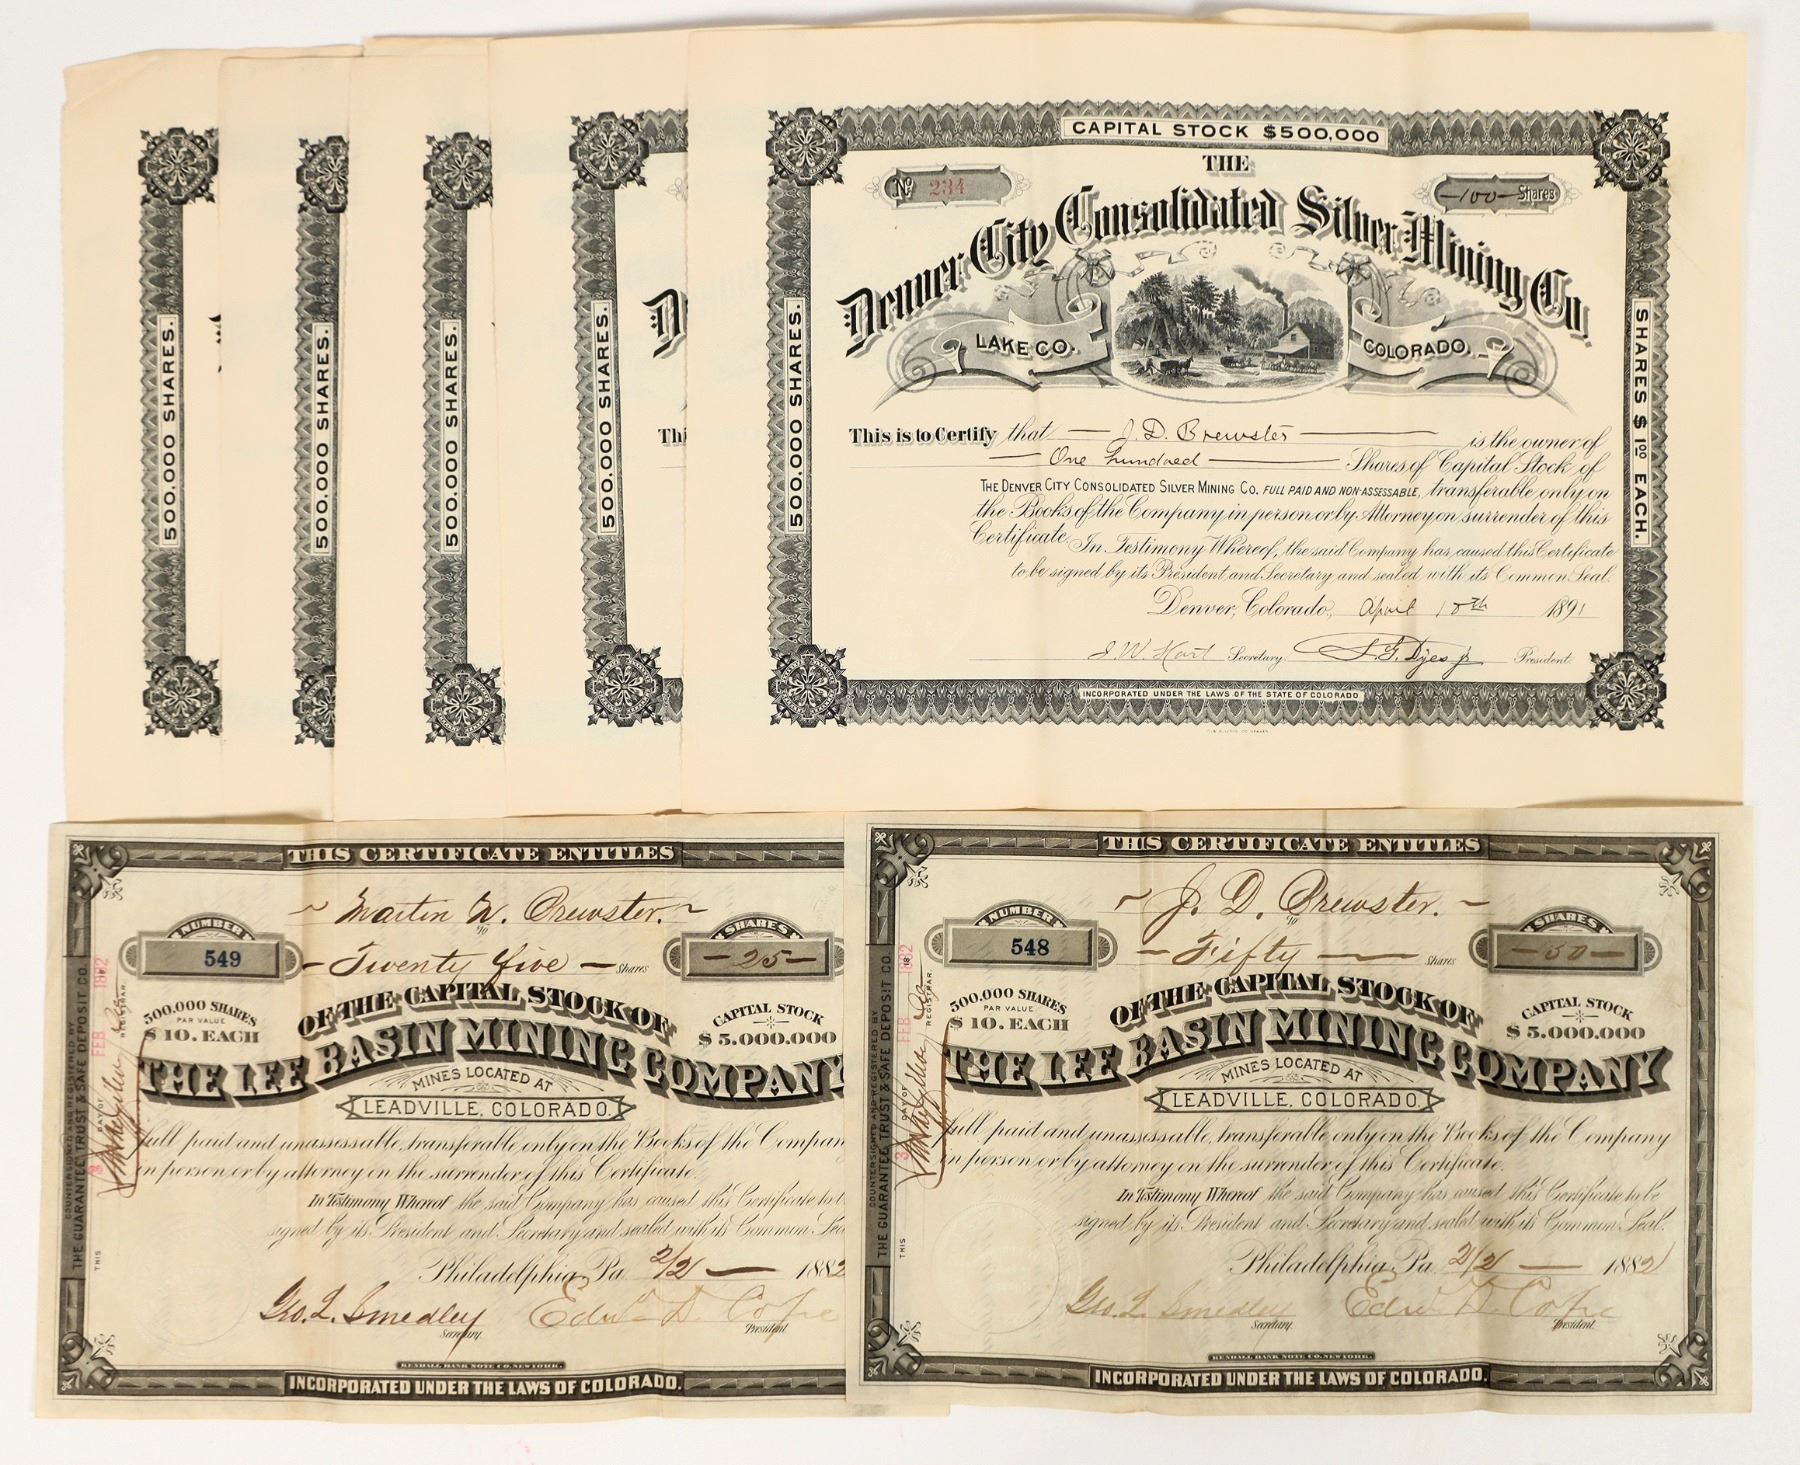 500.000 SHARES.
500.000 SHARES.
500.000 SHARES.
500.000 SHARES.
D
Thi
CAPITAL STOCK $500,000
THE
No 234
-100- Shares
Denver City Consolidated Silver Mining Co.
LAKE CO.
COLORADO.
500.000 SHARES.
SHARES $1.00 EACH.
This is to Certify that J. D. Brewster is the owner of
One hundred Shares of Capital Stock of
THE DENVER CITY CONSOLIDATED SILVER MINING CO. FULL PAID AND NON-ASSESSABLE, transferable only on
the Books of the Company in person or by Attorney on surrender of this
Certificate. In Testimony Whereof, the said Company has caused this Certificate
to be signed by its President and Secretary and sealed with its Common Seal.
Denver, Colorado, April 18th 1891
J. W. Hart Secretary. S. G. Dyes jr President.
INCORPORATED UNDER THE LAWS OF THE STATE OF COLORADO
THIS CERTIFICATE ENTITLES
Martin N. Brewster.
NUMBER
549
to
Twenty five Shares
SHARES
-25-
500.000 SHARES
PAR VALUE
$10. EACH
OF THE CAPITAL STOCK OF
CAPITAL STOCK
$5.000.000
THE LEE BASIN MINING COMPANY
MINES LOCATED AT
LEADVILLE, COLORADO.
full paid and unassessable, transferable only on the Books of the Compan
in person or by attorney on the surrender of this Certificate.
In Testimony Whereof the said Company has caused this Certificate to b
signed by its President and Secretary and sealed with its Common Sea
Philadelphia, Pa. 2/2 1882
Geo. L. Smedley Edw. D. Cope
Secretary. President.
KENDALL BANK NOTE CO. NEW YORK.
INCORPORATED UNDER THE LAWS OF COLORADO.
COUNTERSIGNED AND REGISTERED BY
THE GUARANTEE TRUST & SAFE DEPOSIT CO.
THIS 3 DAY OF FEB 1882
REGISTRAR.
THIS CERTIFICATE ENTITLES
J. D. Brewster.
NUMBER
548
to
Fifty Shares
SHARES
-50-
500.000 SHARES
PAR VALUE
$10. EACH
OF THE CAPITAL STOCK OF
CAPITAL STOCK
$5.000.000
THE LEE BASIN MINING COMPANY
MINES LOCATED AT
LEADVILLE, COLORADO.
full paid and unassessable, transferable only on the Books of the Company
in person or by attorney on the surrender of this Certificate.
In Testimony Whereof the said Company has caused this Certificate to be
signed by its President and Secretary and sealed with its Common Seal.
Philadelphia, Pa. 2/2 1882
Geo. L. Smedley Edw. D. Cope
Secretary. President.
KENDALL BANK NOTE CO. NEW YORK.
INCORPORATED UNDER THE LAWS OF COLORADO.
COUNTERSIGNED AND REGISTERED BY
THE GUARANTEE TRUST & SAFE DEPOSIT CO.
THIS 3 DAY OF FEB 1882
REGISTRAR.